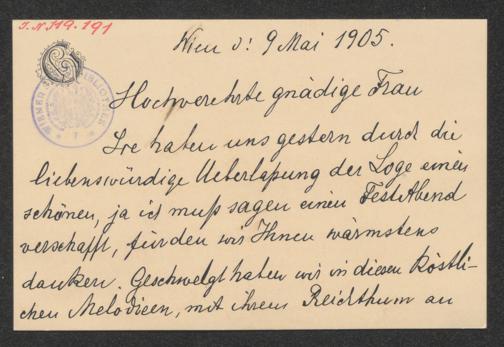 J. N. 119.191
Wien d: 9 Mai 1905.
Hochverehrte gnädige Frau
Sie haben uns gestern durch die
liebenswürdige Ueberlaßung der Loge einen
schönen, ja ich muß sagen einen FestAbend
verschafft, für den wir Ihnen wärmstens
danken. Geschwelgt haben wir in diesen köstli-
chen Melodieen, mit ihrem Reichthum an